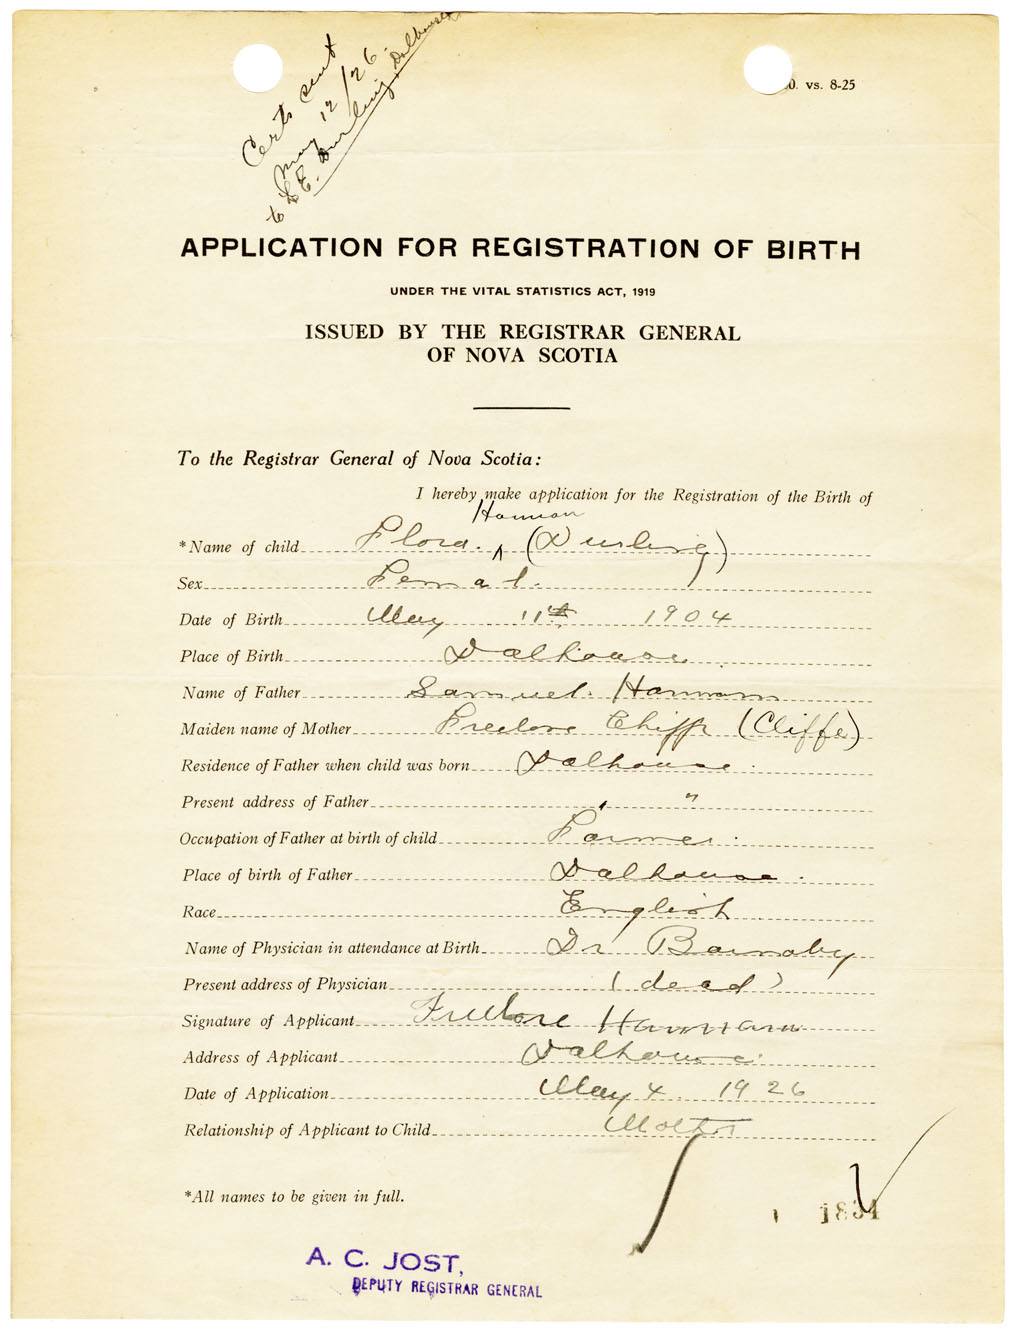 Certs sent
May 12/26.
to L E. Durling, Dalhousie
0. vs. 8-25
APPLICATION FOR REGISTRATION OF BIRTH
UNDER THE VITAL STATISTICS ACT, 1919
ISSUED BY THE REGISTRAR GENERAL
OF NOVA SCOTIA
To the Registrar General of Nova Scotia:
I hereby make application for the Registration of the Birth of
Hannan
*Name of child Flora. ^ (Durling)
Sex Femal.
Date of Birth May 11th 1904
Place of Birth Dalhouse
Name of Father Samuel. Hannam
Maiden name of Mother Freelove Chiffe (Cliffe)
Residence of Father when child was born Dalhouse.
Present address of Father "
Occupation of Father at birth of child Farmer.
Place of birth of Father Dalhouse.
Race English
Name of Physician in attendance at Birth Dr Barnaby
Present address of Physician (dead)
Signature of Applicant Freelove Hannam
Address of Applicant Dalhouse.
Date of Application May 4 1926
Relationship of Applicant to Child Mother
*All names to be given in full.
1834
A. C. JOST,
DEPUTY REGISTRAR GENERAL